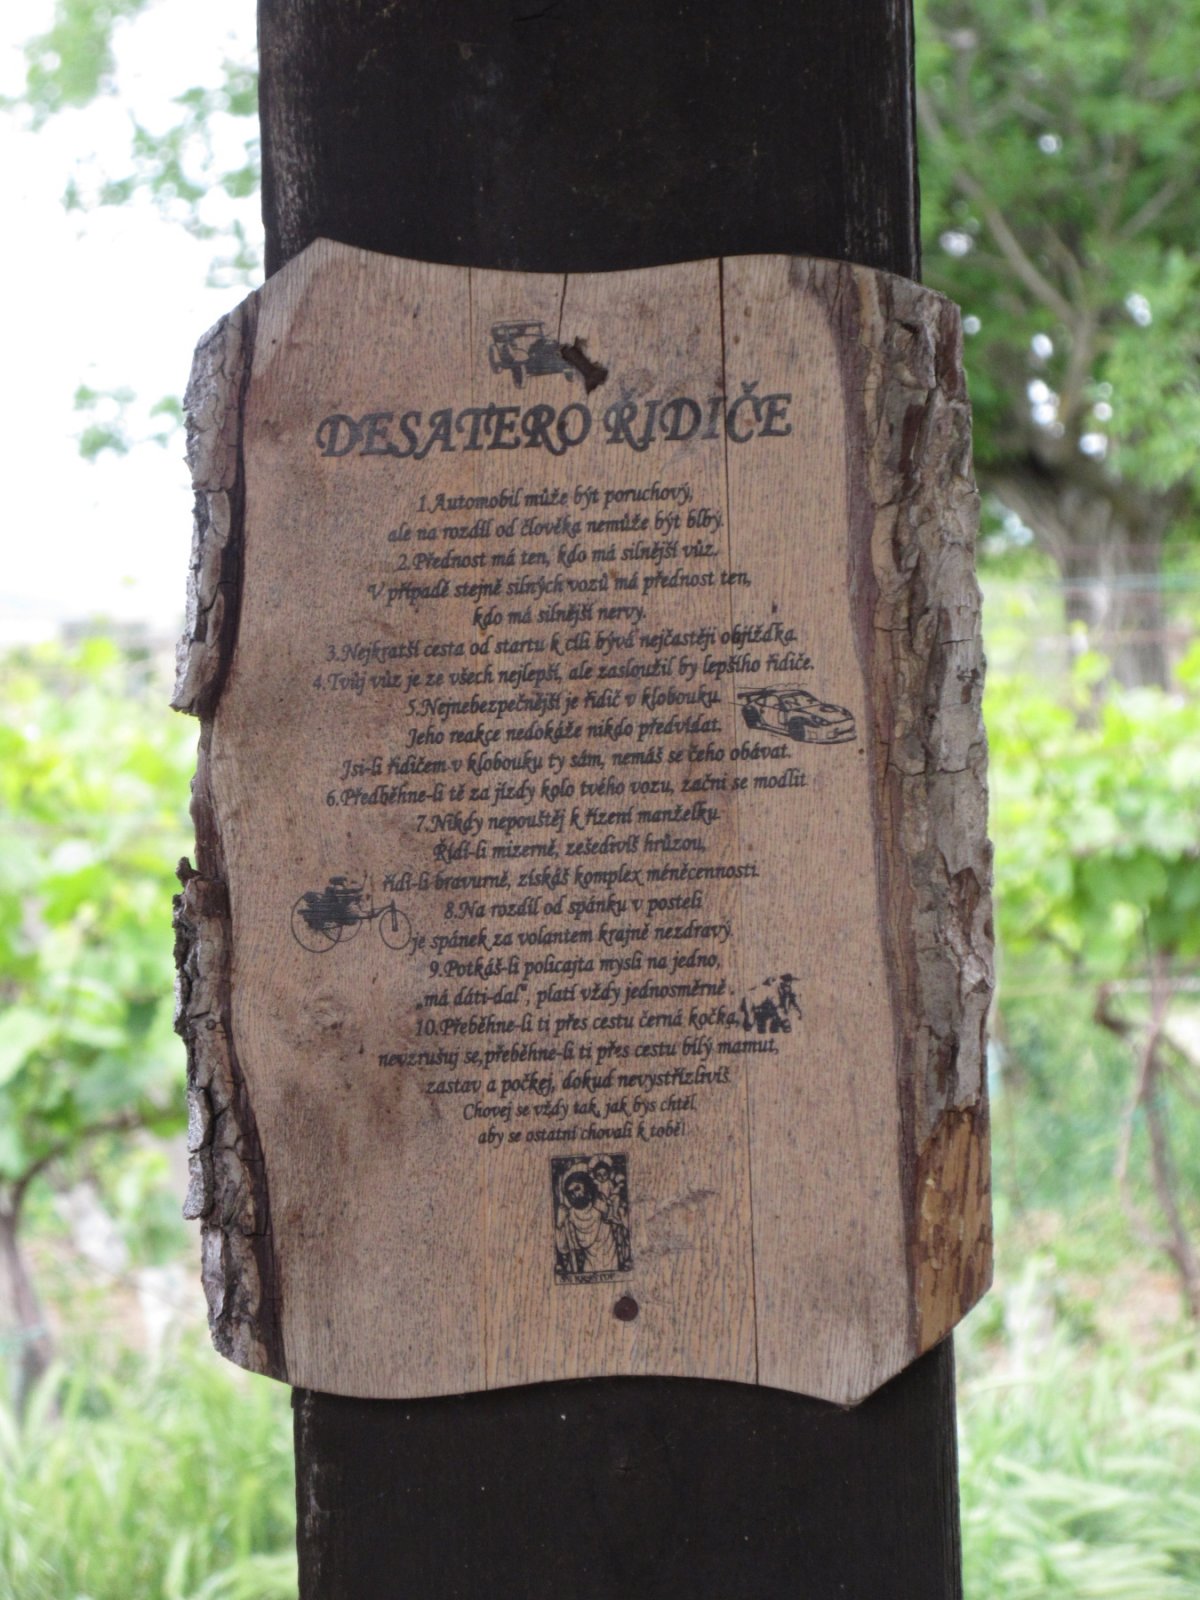 DESATERO ŘIDIČE
1.Automobil může být poruchový,
ale na rozdíl od člověka nemůže být blbý.
2.Přednost má ten, kdo má silnější vůz.
V případě stejně silných vozů má přednost ten,
kdo má silnější nervy.
3.Nejkratší cesta od startu k cíli bývá nejčastěji objížďka.
4.Tvůj vůz je ze všech nejlepší, ale zasloužil by lepšího řidiče.
5.Nejnebezpečnější je řidič v klobouku.
Jeho reakce nedokáže nikdo předvídat.
Jsi-li řidičem v klobouku ty sám, nemáš se čeho obávat.
6.Předběhne-li tě za jízdy kolo tvého vozu, začni se modlit
7.Nikdy nepouštěj k řízení manželku.
Řídí-li mizerně, zešedivíš hrůzou,
řídí-li bravurně, získáš komplex méněcennosti.
8.Na rozdíl od spánku v posteli
je spánek za volantem krajně nezdravý.
9.Potkáš-li policajta mysli na jedno,
„má dáti-dal", platí vždy jednosměrně.
10.Přeběhne-li ti přes cestu černá kočka,
nevzrušuj se,přeběhne-li ti přes cestu bílý mamut,
zastav a počkej, dokud nevystřízlivíš.
Chovej se vždy tak, jak bys chtěl,
aby se ostatní chovali k tobě!
SV. KRYŠTOF